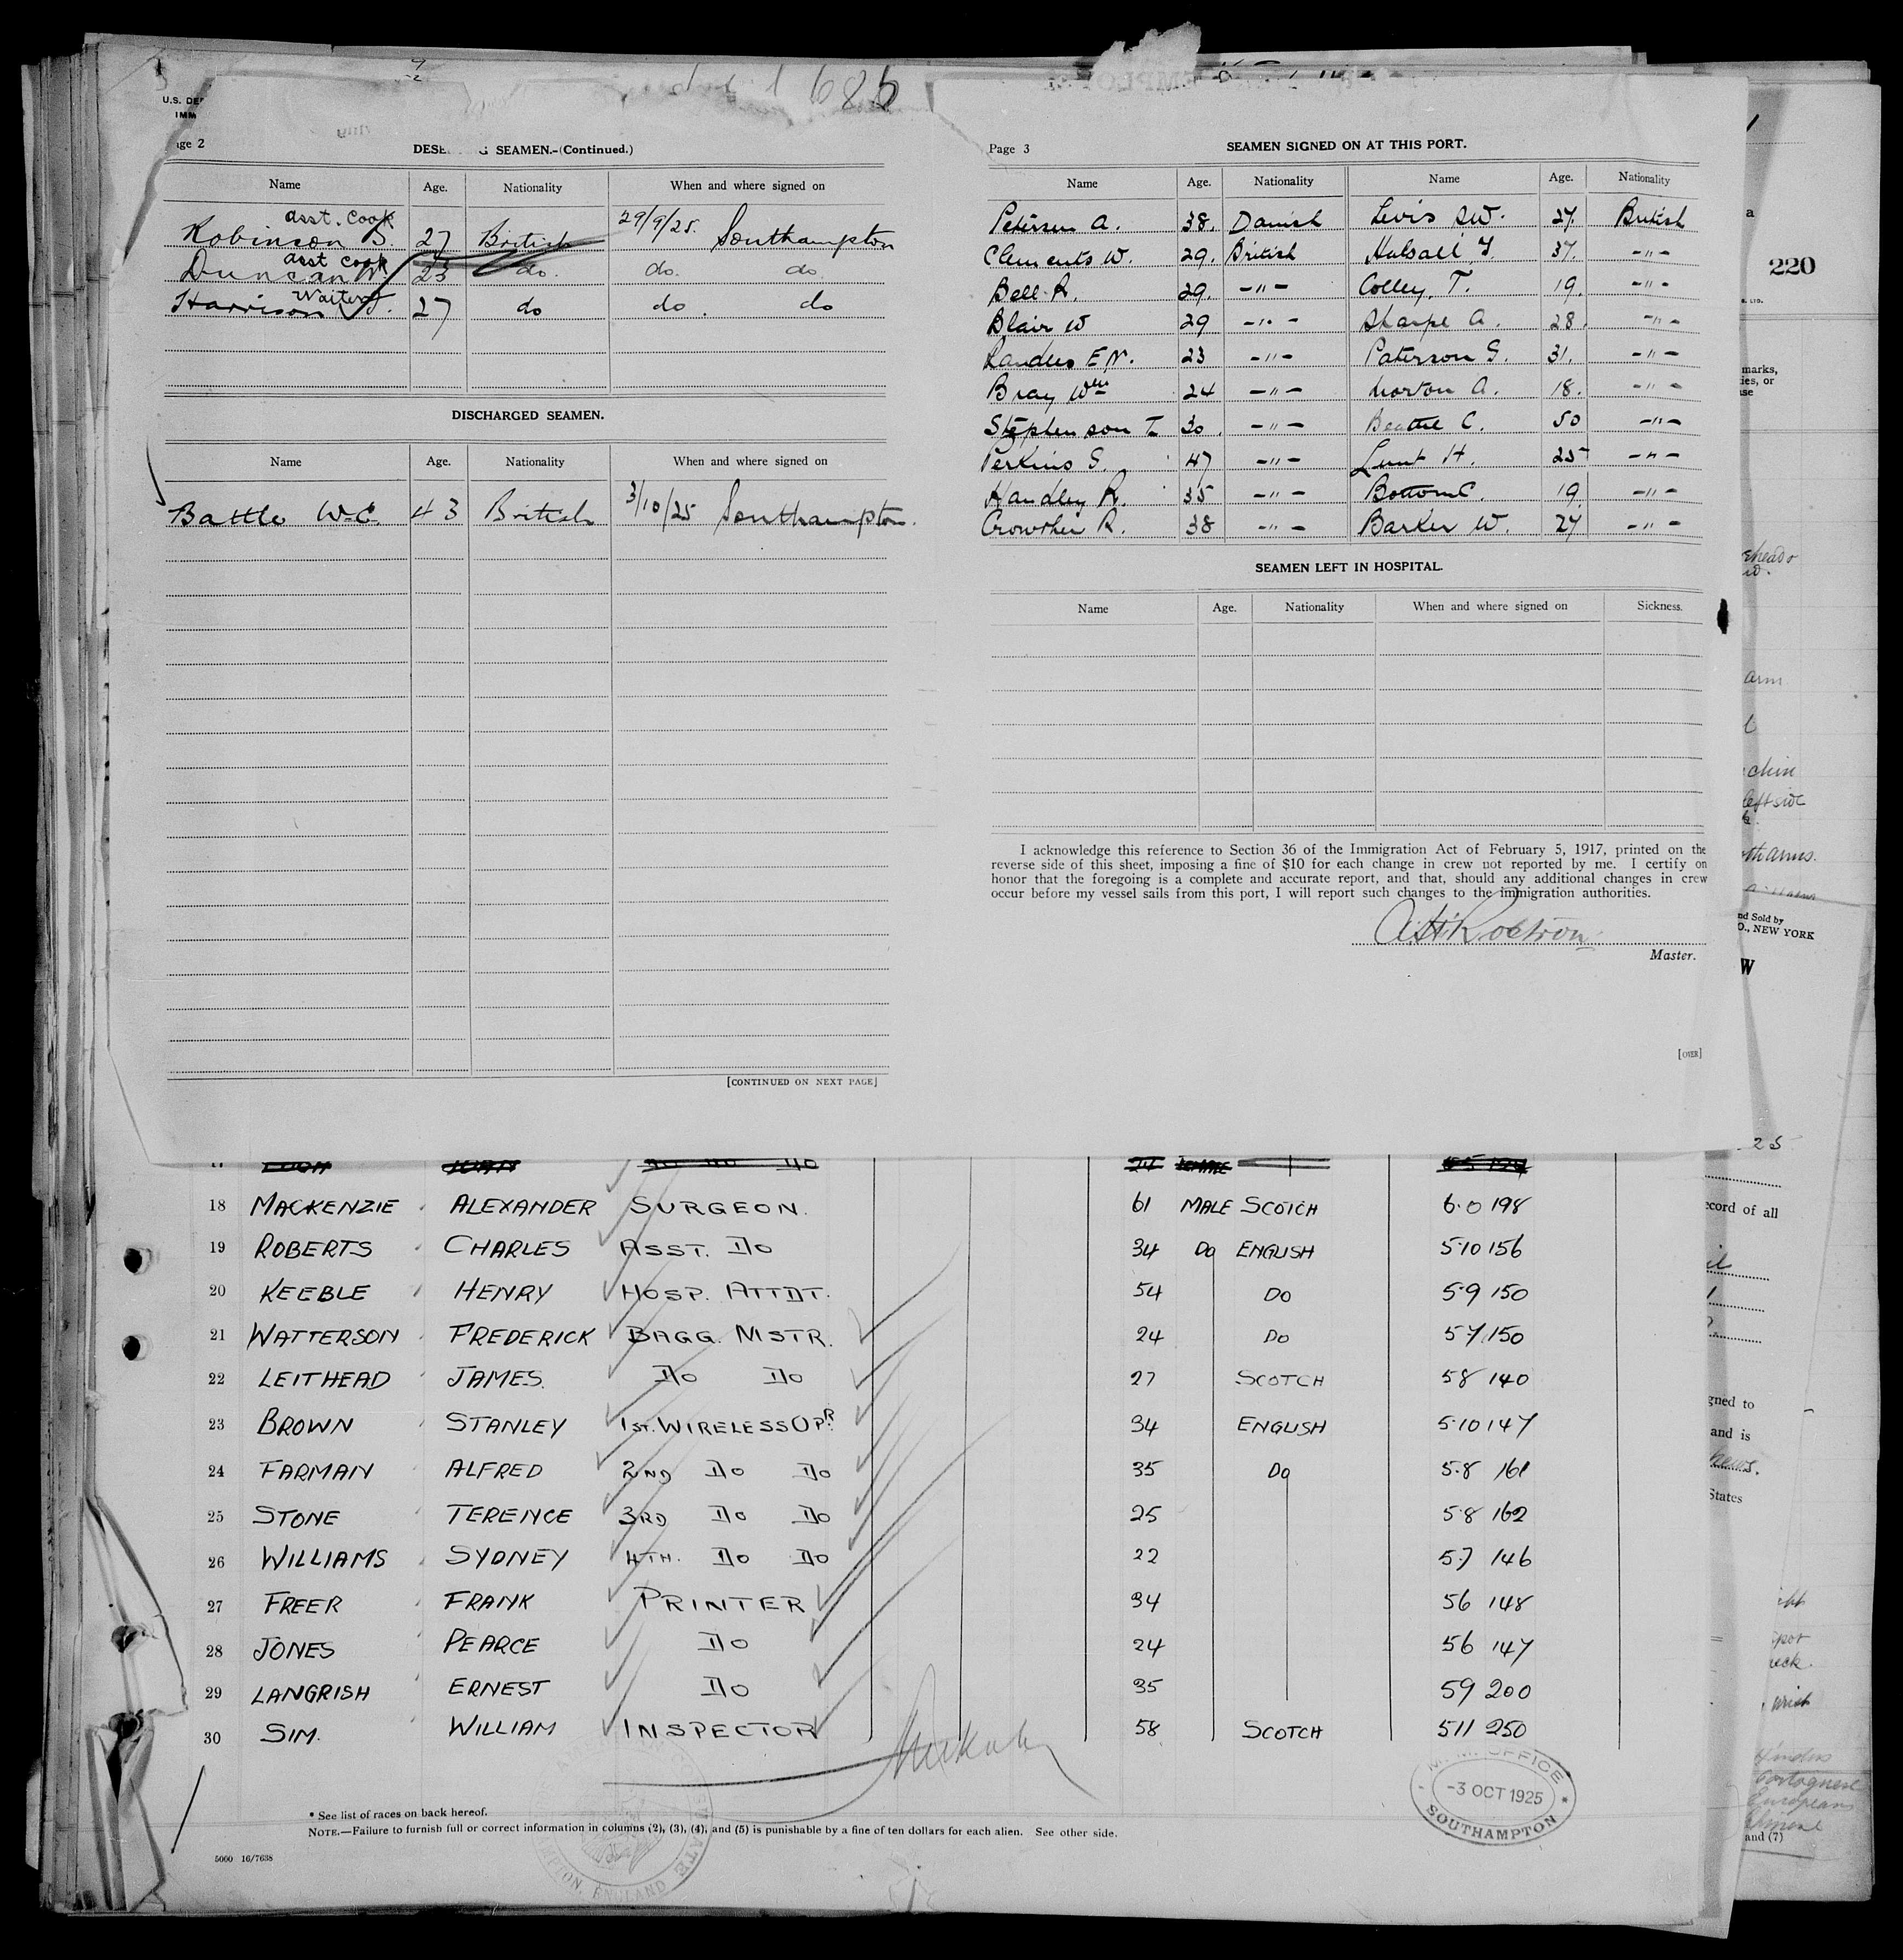 U.S. DE
IMM
ge 2
DESE G SEAMEN.-(Continued.)
Name Age. Nationality When and where signed on
asst. cook
Robinson S. 27 British 29/9/25. Southampton
asst cook
Duncan W. 23 do. do. do.
Waiter
Harrison J. 27 do do. do
DISCHARGED SEAMEN.
Name Age. Nationality When and where signed on
Battle W.C. 43 British 3/10/25 Southampton.
[CONTINUED ON NEXT PAGE]
Page 3
SEAMEN SIGNED ON AT THIS PORT.
Name Age. Nationality Name Age. Nationality
Petersen A. 38. Danish Levis S.W. 27. British
Clements W. 29. British Halsall J. 37. -"-
Bell R. 29. -"- Colley. T. 19. -"-
Blair W 29 -"- Sharpe A. 28. -"-
Landles E.N. 23 -"- Paterson G. 31. -"-
Bray Wm 24 -"- Norton A. 18. -"-
Stephenson T. 30. -"- Beattie C. 50 -"-
Perkins S. 47 -"- Lunt H. 25 -"-
Handley R. 35 -"- Bottom C. 19. -"-
Crowther R. 38 -"- Barker W. 27 -"-
SEAMEN LEFT IN HOSPITAL.
Name Age. Nationality When and where signed on Sickness.
I acknowledge this reference to Section 36 of the Immigration Act of February 5, 1917, printed on the
reverse side of this sheet, imposing a fine of $10 for each change in crew not reported by me. I certify on
honor that the foregoing is a complete and accurate report, and that, should any additional changes in crew
occur before my vessel sails from this port, I will report such changes to the immigration authorities.
A.H. Rostron
Master.
[OVER]
18 MACKENZIE ALEXANDER SURGEON. 61 MALE SCOTCH 6.0 198
19 ROBERTS CHARLES ASST. DO 34 DO ENGLISH 5.10 156
20 KEEBLE HENRY HOSP. ATTDT. 54 DO 5.9 150
21 WATTERSON FREDERICK BAGG. MSTR. 24 DO 5.7 150
22 LEITHEAD JAMES. DO DO 27 SCOTCH 5.8 140
23 BROWN STANLEY 1ST. WIRELESS OPR. 34 ENGLISH 5.10 147
24 FARMAN ALFRED 2ND DO DO 35 DO 5.8 161
25 STONE TERENCE 3RD DO DO 25 5.8 162
26 WILLIAMS SYDNEY 4TH. DO DO 22 5.7 146
27 FREER FRANK PRINTER 34 56 148
28 JONES PEARCE DO 24 56 147
29 LANGRISH ERNEST DO 35 59 200
30 SIM. WILLIAM INSPECTOR 58 SCOTCH 511 250
M.M. OFFICE
-3 OCT 1925
SOUTHAMPTON
* See list of races on back hereof.
NOTE.—Failure to furnish full or correct information in columns (2), (3), (4), and (5) is punishable by a fine of ten dollars for each alien. See other side.
5000 16/7638
220
marks,
ies, or
chin
left side
nd Sold by
O., NEW YORK
W
25
ecord of all
gned to
and is
States
Hindus
Portuguese
European
and (7)